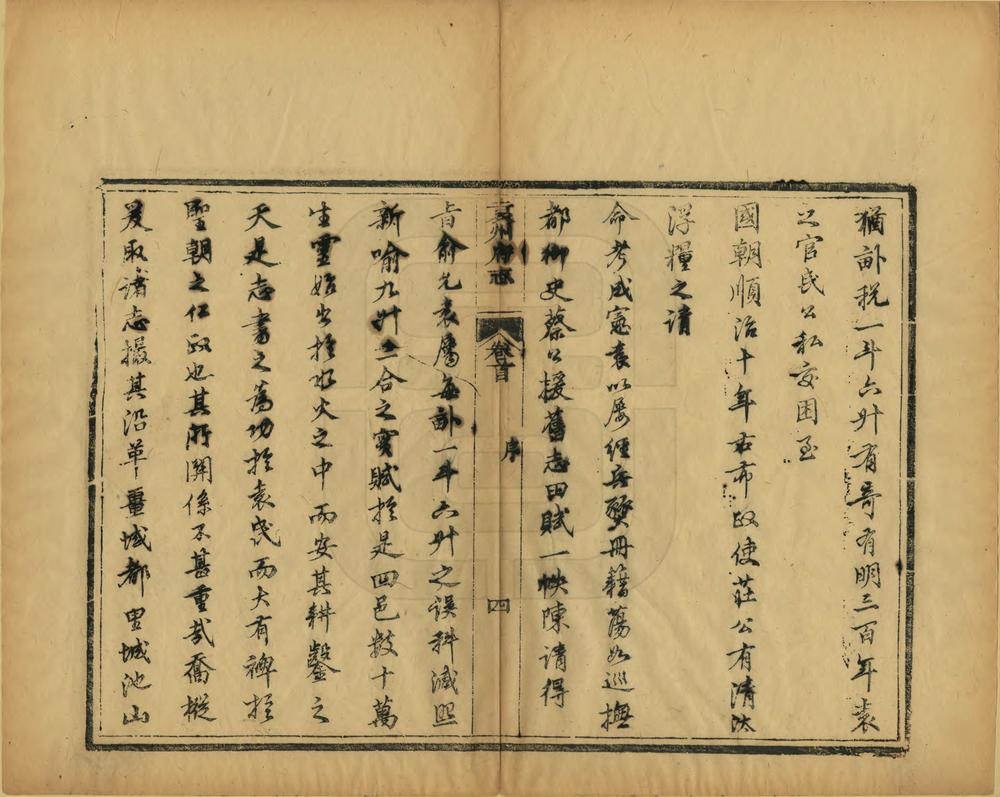 猶畝稅一斗六升有奇有明三百年袁
之官民公私交困至
國朝順治十年右布政使莊公有清汰
浮糧之請
命考成憲袁以屢經兵燹冊籍蕩如巡撫
都御史蔡公援舊志田賦一帙陳請得
袁州府志
卷首
序
四
旨俞允袁屬每畝一斗六升之誤科減照
新喻九升二合之實賦於是四邑數十萬
生靈始出於水火之中而安其耕鑿之
天是志書之為功於袁民而大有裨於
聖朝之仁政也其所關係不甚重哉喬樅
爰取諸志撮其沿革畺域都里城池山